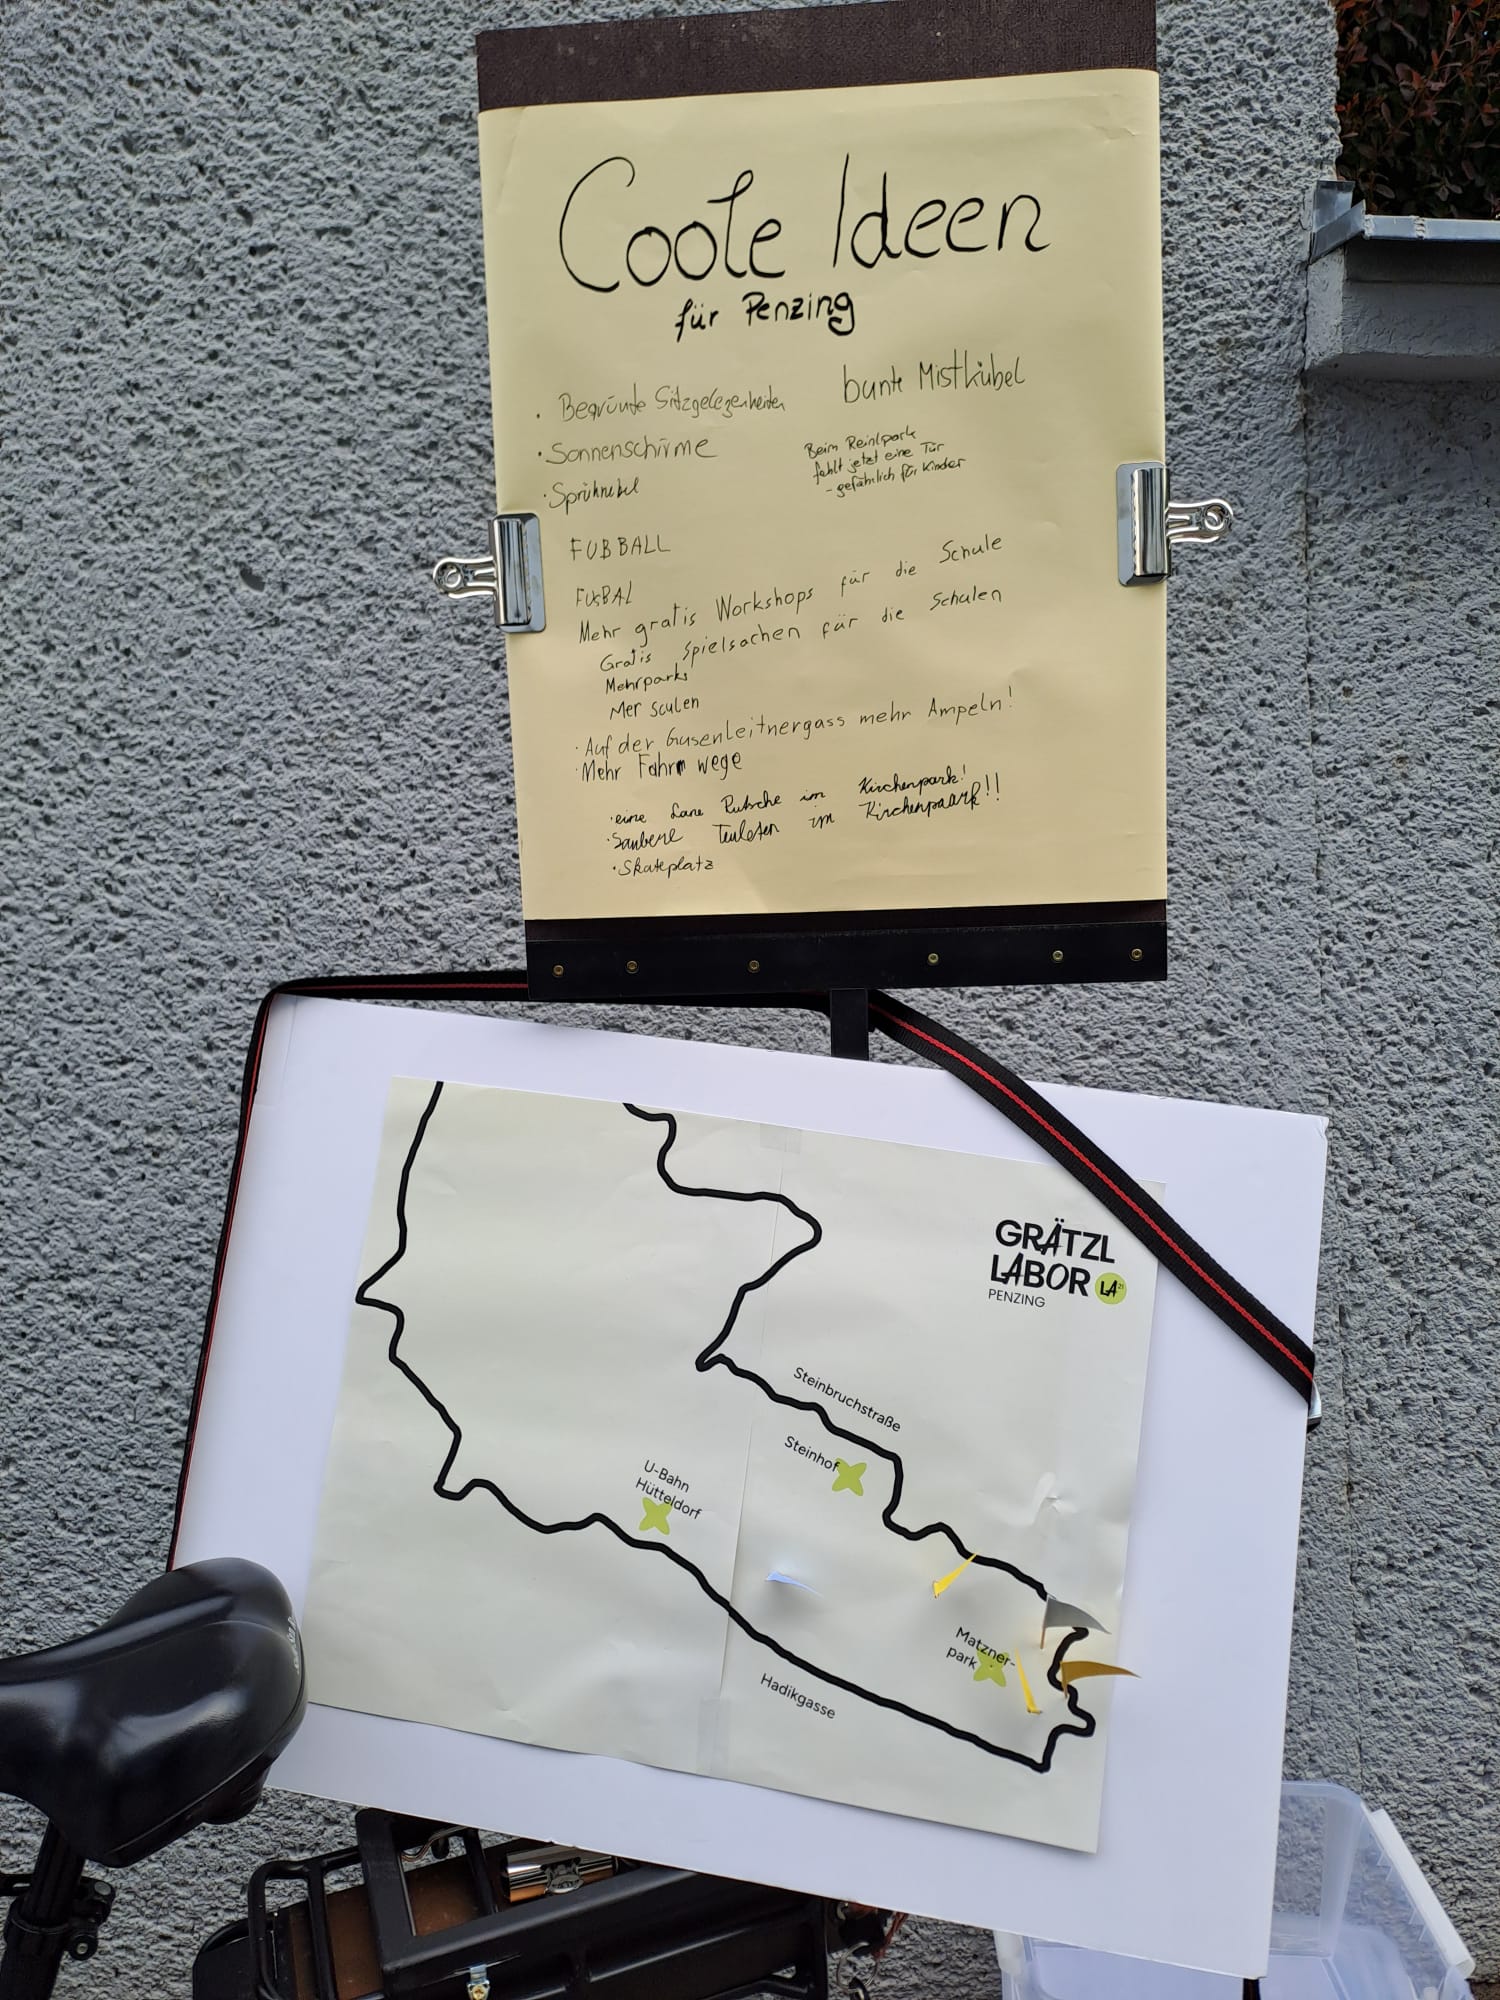 Coole Ideen
für Penzing
bunte Mistkübel
• Begrünte Sitzgelegenheiten
• Sonnenschirme
• Sprühnebel
Beim Reinlpark
fehlt jetzt eine Tür
- gefährlich für Kinder
FUßBALL
FUßBAL
Mehr gratis Workshops für die Schule
Gratis Spielsachen für die Schulen
Mehrparks
Mer sculen
• Auf der Gusenleitnergass mehr Ampeln!
• Mehr Fahr wege
• eine Lane Rutsche im Kirchenpark!
• Saubere Teuleten im Kirchenpaark!!
• Skateplatz
GRÄTZL
LABOR LA21
PENZING
Steinbruchstraße
Steinhof
U-Bahn
Hütteldorf
Matzner-
park
Hadikgasse